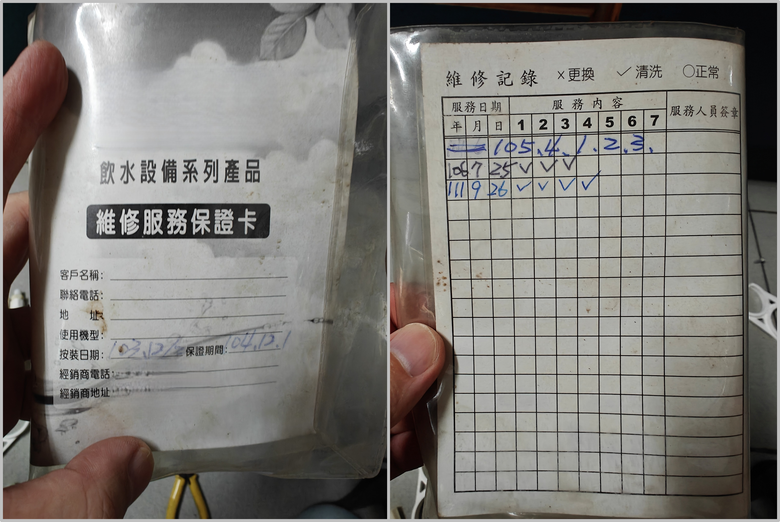 飲水設備系列產品
維修服務保證卡
客戶名稱：
聯絡電話：
地　址：
使用機型：
按裝日期： 保證期間：104.12.1
經銷商電話：
經銷商地址
維修記錄 ×更換 ✓清洗 ○正常
服務日期 服務內容 服務人員簽章
年 月 日 1 2 3 4 5 6 7
105.4.1.2.3.
106 7 25 ✓ ✓ ✓
111 9 26 ✓ ✓ ✓ ✓